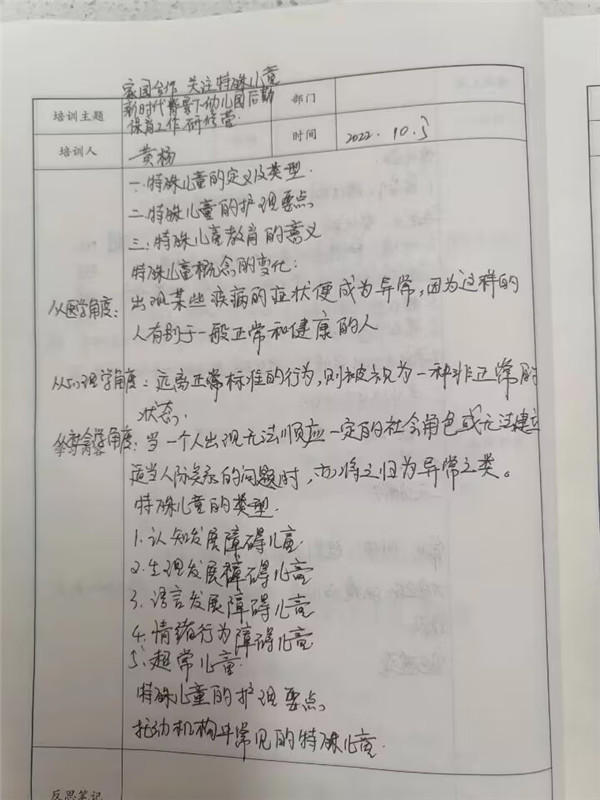 家园合作 关注特殊儿童
培训主题 新时代背景下幼儿园后勤 部门
保育工作研修营
时间 2022.10.5
培训人 黄杨
一.特殊儿童的定义及类型.
二.特殊儿童的护理要点
三.特殊儿童教育的意义
特殊儿童概念的变化:
从医学角度: 出现某些疾病的症状便成为异常,因为这样的
人有别于一般正常和健康的人
从心理学角度: 远离正常标准的行为,则被视为一种非正常的
状态.
会学角度: 当一个人出现无法顺应一定的社会角色或无法建立
适当人际关系的问题时,亦将之归为异常之类。
特殊儿童的类型.
1.认知发展障碍儿童
2.生理发展障碍儿童
3.语言发展障碍儿童
4.情绪行为障碍儿童
5.超常儿童.
特殊儿童的护理要点.
托幼机构中常见的特殊儿童.
反思笔记